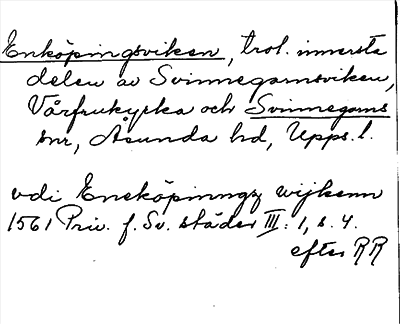 Enköpingsviken, trol. innersta
delen av Svinnegarnsviken,
Vårfrukyrka och Svinnegarns
snr, Åsunda hd, Upps. l.
vdi Eneköpinngz wijkenn
1561 Priv. f. Sv. städer III: 1, s. 4.
efter RR